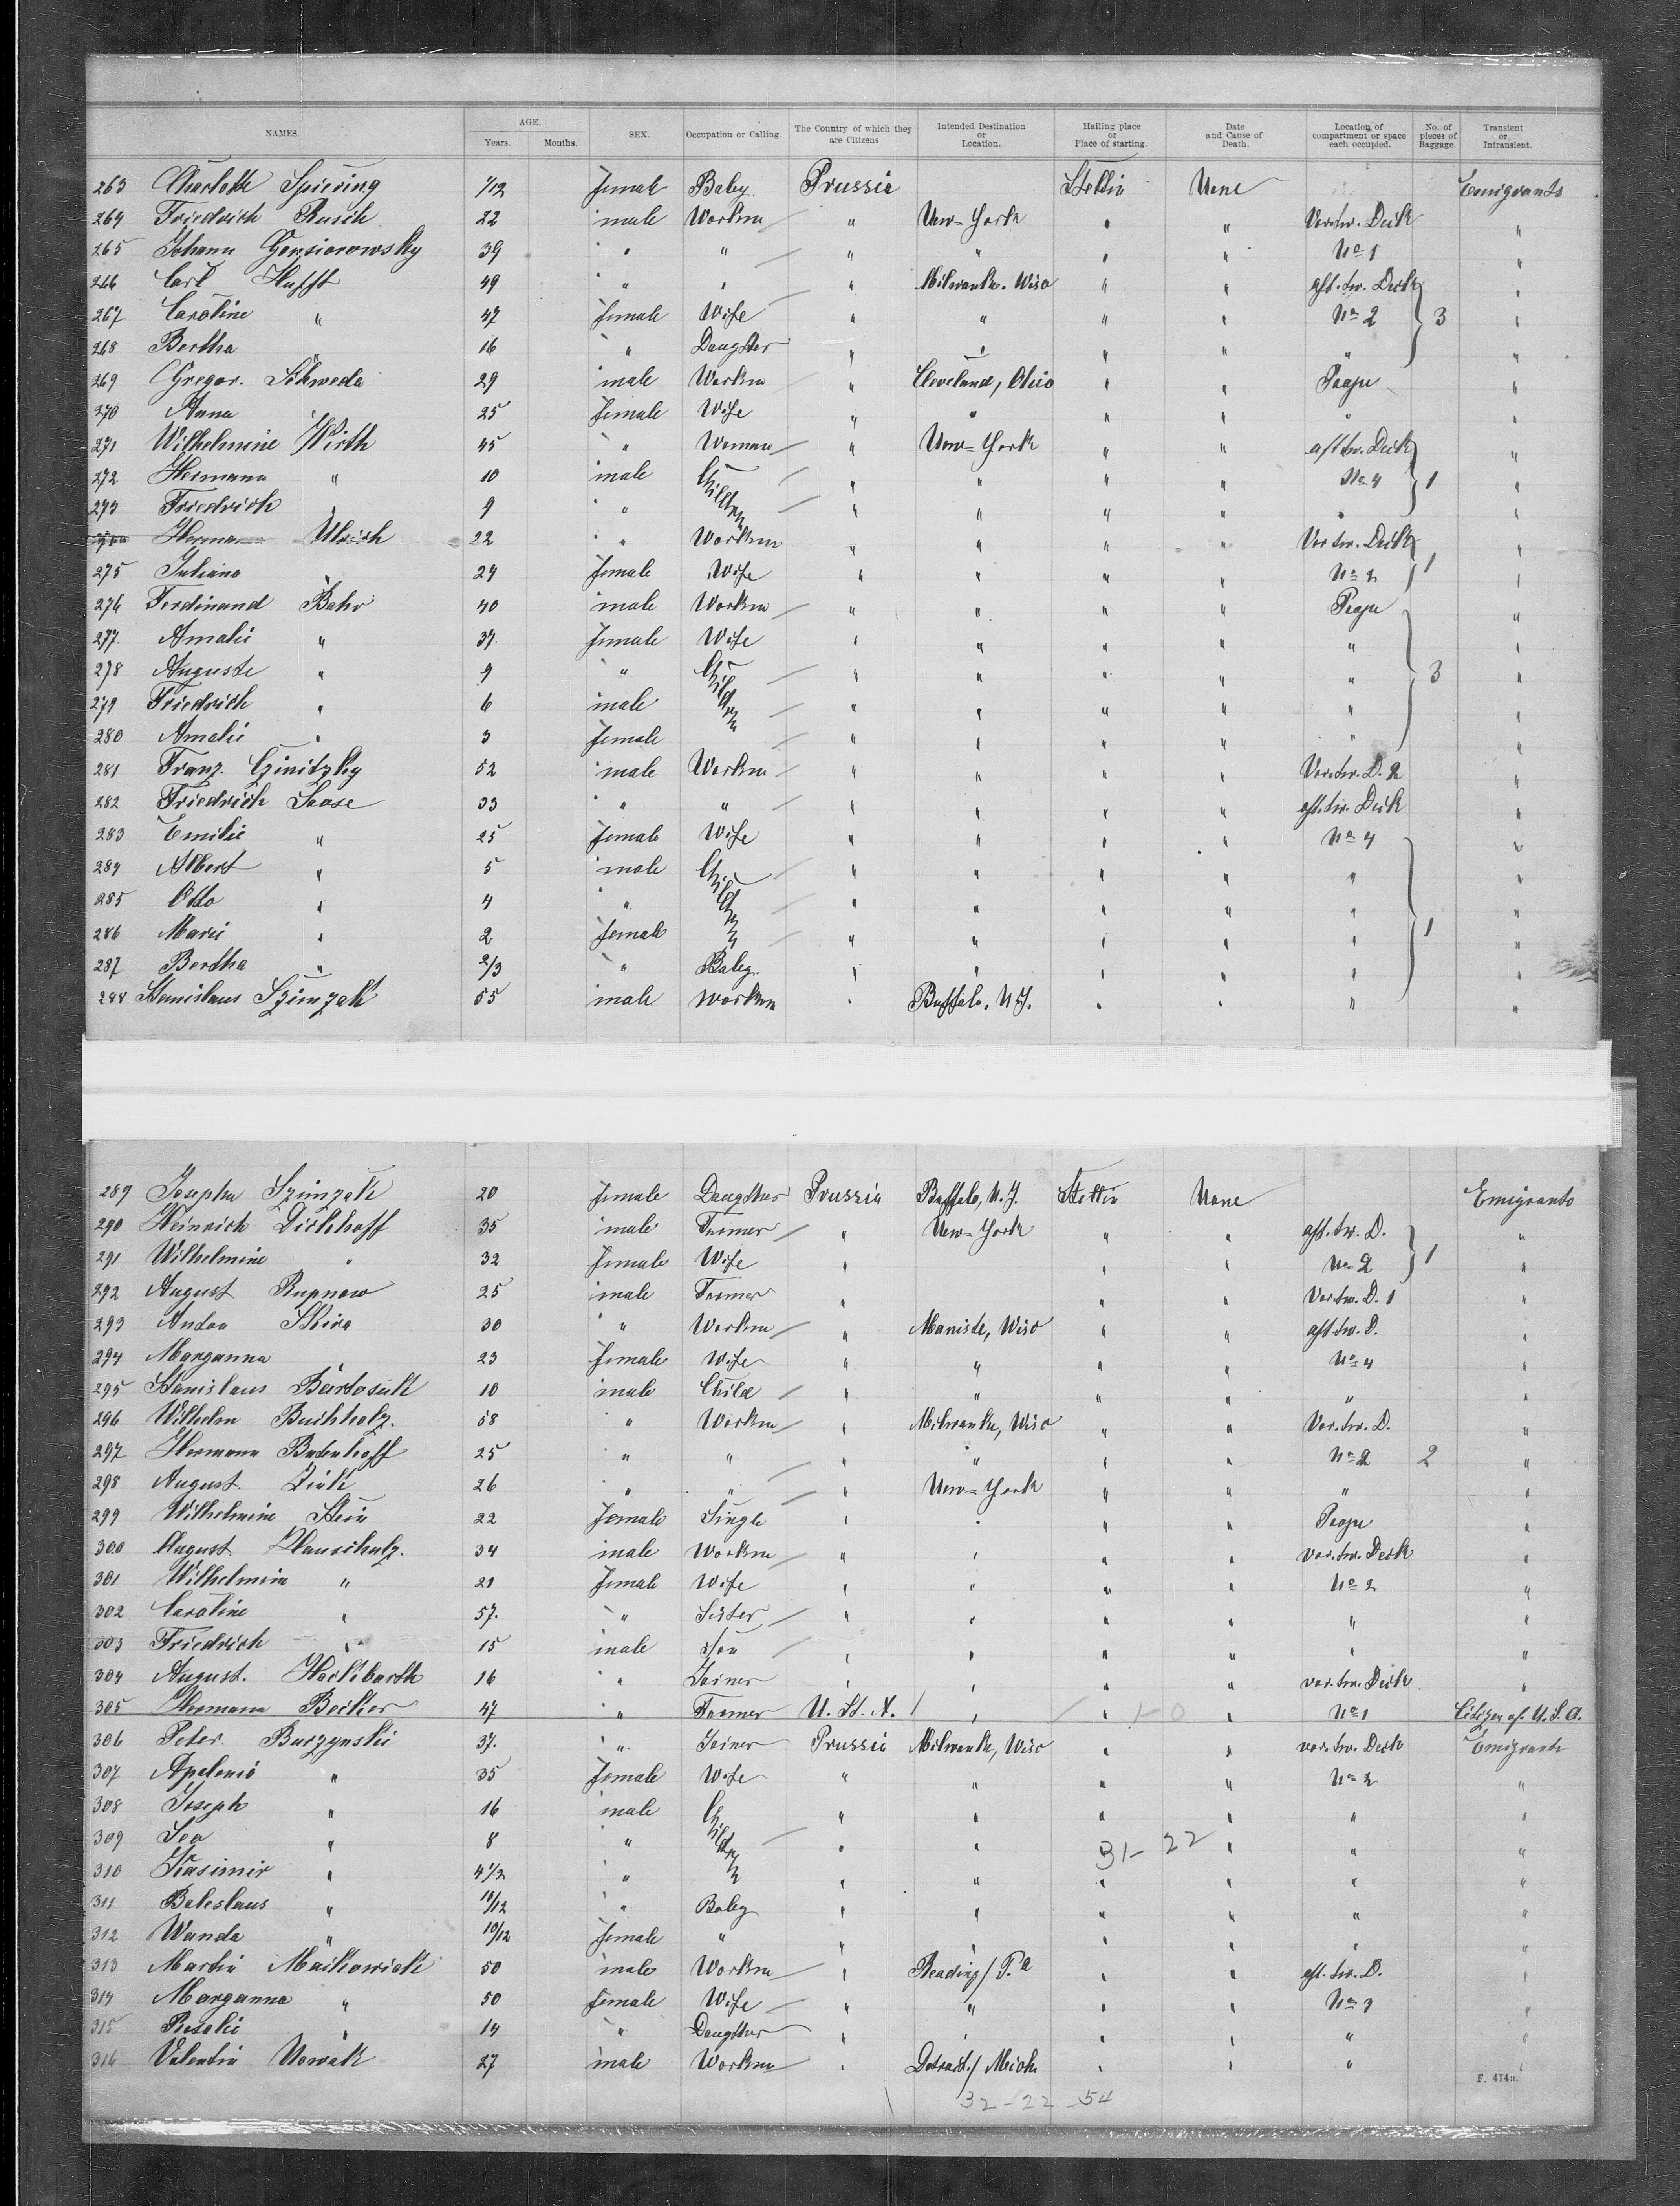 NAMES. AGE. Years. Months. SEX. Occupation or Calling. The Country of which they are Citizens Intended Destination or Location. Hailing place or Place of starting. Date and Cause of Death. Location of compartment or space each occupied. No. of pieces of Baggage. Transient or Intransient.
263 Charlotte Spiering 1/12 female Baby Prussia Stettin None Emigrants
264 Friedrich Rusch 22 male Workm " New-York " " Vor.tw. Deck "
265 Johann Gonsiorowsky 39 " " " " " " No 1 "
266 Carl Hufft 49 " " " Milwauk. Wisc " " aft. tw. Deck "
267 Caroline " 47 female Wife " " " " No 2 3 "
268 Bertha " 16 " Daughter " " " " " "
269 Gregor. Schweda 29 male Workm " Cleveland, Ohio " " "
270 Anna " 25 female Wife " " " " " "
271 Wilhelmine Wirth 45 " Woman " New-York " " aft tw. Deck "
272 Hermann " 10 male Children " " " " No 4 1 "
273 Friedrich " 9 " " " " " " "
Herman Ulrich 22 " Workm " " " " Vor tw. Deck "
275 Juliana " 24 female Wife " " " " No 2 1 "
276 Ferdinand Behr 40 male Workm " " " " "
277. Amalie " 37. female Wife " " " " " "
278 Auguste " 9 " Children " " " " " 3 "
279 Friedrich " 6 male " " " " " "
280 Amalie " 3 female " " " " " "
281 Franz. Czinitzky 52 male Workm " " " " Vor.tw. D. 2 "
282 Friedrich Saase 33 " " " " " " aft. tw. Deck "
283 Emilie " 25 female Wife " " " " No 4 "
284 Albert " 5 male Children " " " " " "
285 Otto " 4 " " " " " " "
286 Marie " 2 female " " " " " 1 "
287 Bertha " 2/3 " Baby " " " " " "
288 Stanislaus Szimzak 55 male workm " Buffalo, N.Y. " " " "
289 Josepha Szimzak 20 female Daughter Prussia Buffalo, N.Y. Stettin None Emigrants
290 Heinrich Dickhoff 35 male Farmer " New-York " " aft. tw. D. "
291 Wilhelmine " 32 female Wife " " " No 2 1 "
292 August Rupnow 25 male Farmer " " " Vor.tw. D. 1 "
293 Skira 30 " Workm " Maniste, Wisc " " aft tw. D. "
294 Marganna " 23 female Wife " " " " No 4 "
295 Stanislaus Bartosak 10 male Child " " " " " "
296 Wilhelm Buchholz. 58 " Workm " Milwauke, Wisc " " Vor. tw. D. "
297 Hermann Badenhoff 25 " " " " " " No 2 2 "
298 August. 26 " " " New-York " " " "
299 Wilhelmine Stein 22 female Single " " " " "
300 August. Hauschulz. 34 male Workm " " " " vor. tw. Deck "
301 Wilhelmine " 21 female Wife " " " " No 2 "
302 Caroline " 57. " Sister " " " " " "
303 Friedrich " 15 male Son " " " " " "
304 August. Hackbarth 16 " Joiner " " " " vor. tw. Deck "
305 Hermann Becker 47 " Farmer U. St. A. " " 1-0 " No 1 Citizen of U.S.A.
306 Peter. Burzynski 37. " Joiner Prussia Milwauk, Wisc " " vor. tw. Deck Emigrants
307 Apelonia " 35 female Wife " " " " No 2 "
308 Joseph " 16 male Children " " " " " "
309 Leo " 8 " " " 31-22 " " "
310 Kasimir " 4 1/2 " " " " " " "
311 Boleslaus " 10/12 " Baby " " " " " "
312 Wanda " 10/12 female " " " " " " "
313 Martin Maikowiak 50 male Workm " Reading / Pa " " aft. tw. D. "
314 Marganna " 50 female Wife " " " " "
315 Rosalie " 14 " Daughter " " " " " "
316 Valentin Nowak 27 male Workm " Detroit / Mich " " " "
F. 414a.
32-22-54